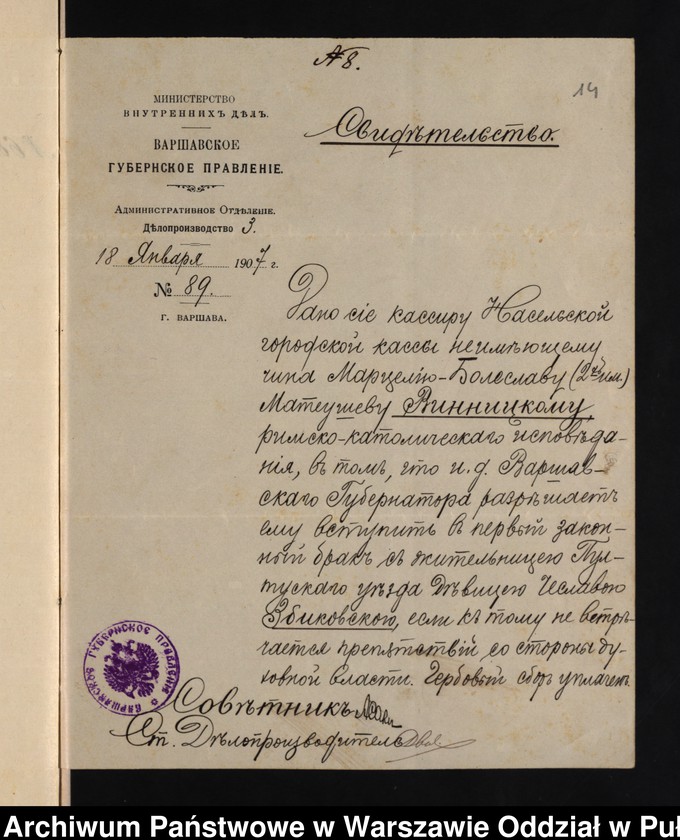 № 8.
14
МИНИСТЕРСТВО
ВНУТРЕННИХЪ ДѢЛЪ.
ВАРШАВСКОЕ
ГУБЕРНСКОЕ ПРАВЛЕНІЕ.
Административное Отдѣленіе.
Дѣлопроизводство 3.
18 Января 1907 г.
№ 89.
Г. ВАРШАВА.
Свидѣтельство.
Дано сіе кассиру Насельской
городской кассы неимѣющему
чина Марцелію-Болеславу (2хъ им.)
Матеушеву Винницкому,
римско-католическаго исповѣда-
нія, въ томъ, что и. д. Варшав-
скаго Губернатора разрѣшаетъ
ему вступить въ первый закон-
ный бракъ съ жительницею Пул-
тускаго уѣзда дѣвицею Чеславою
Збиковской, если къ тому не встрѣ-
чается препятствій со стороны ду-
ховной власти. Гербовый сборъ уплаченъ
Совѣтникъ
Ст. Дѣлопроизводитель
ВАРШАВСКОЕ ГУБЕРНСКОЕ ПРАВЛЕНІЕ
Archiwum Państwowe w Warszawie Oddział w Puł